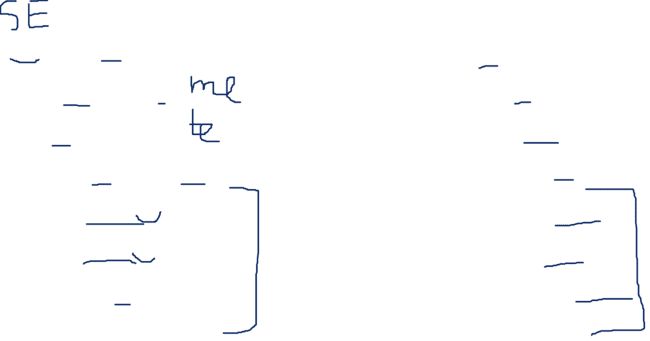 SE
me
te